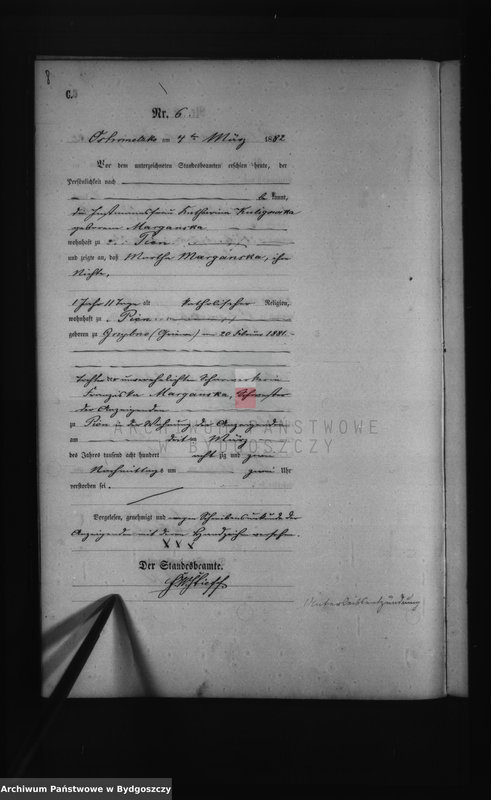 8
C.
Nr. 6
Ostrometzko am 4ten März 1882
Vor dem unterzeichneten Standesbeamten erschien heute, der
Persönlichkeit nach
be kannt,
die Instmannsfrau Katharina Kuligowska
geborene Marganska
wohnhaft zu Pien
und zeigte an, daß Martha Marganska, ihre
Nichte,
1 Jahr 11 Tage alt katholischer Religion,
wohnhaft zu Pien
geboren zu Grzybno am 20 Februar 1881
Tochter der unverehelichten Scharwerkerin
Franziska Marganska, Schwester
der Anzeigenden
zu Pien in der Wohnung der Anzeigenden
am dritten März
des Jahres tausend acht hundert acht zig und zwei
Nachmittags um zwei Uhr
verstorben sei.
Vorgelesen, genehmigt und wegen Schreibensunkunde der
Anzeigenden mit deren Handzeichen versehen.
XXX
Der Standesbeamte.
Unterleibsentzündung
ARCHIWUM PAŃSTWOWE
W BYDGOSZCZY
Archiwum Państwowe w Bydgoszczy